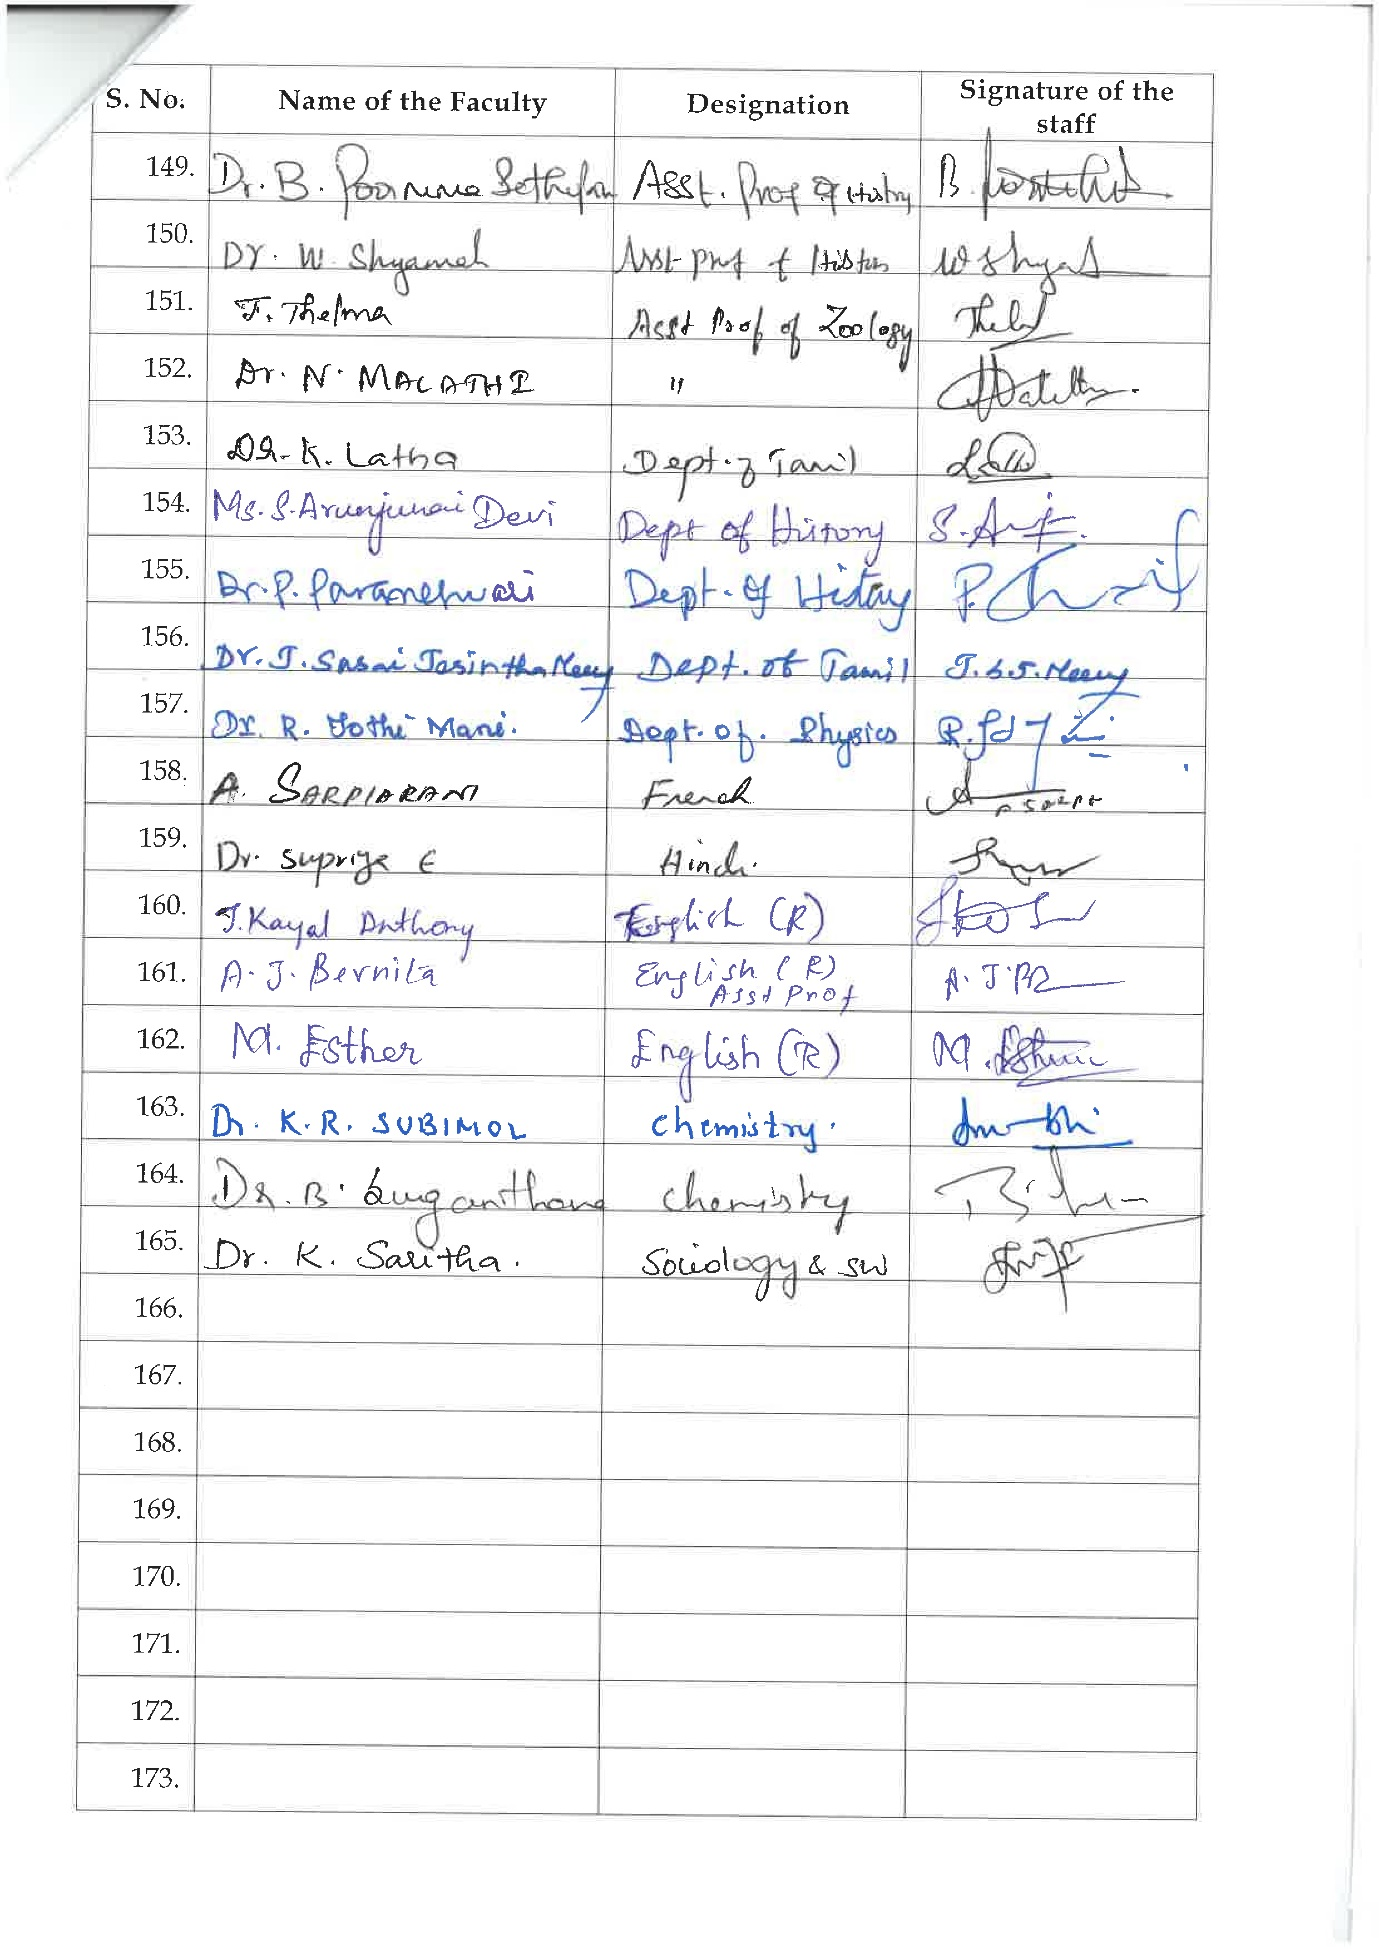 S. No. Name of the Faculty Designation Signature of the staff
149. Dr. B. Poornima Sethupa Asst. Prof of History B.
150. Dr. W. Shyamala Asst prof of History W Shya
151. J. Thelma Asst Prof of Zoology Thel
152. Dr. N. MALATHI "
153. DR. K. Latha Dept. of Tamil
154. Ms. S. Arunjunai Devi Dept of History S.
155. Dr. P. Parameshwari Dept. of History P.
156. Dr. J. Sasai Jasintha Mercy Dept. of Tamil J.S.J. Mercy
157. Dr. R. Jothi Mani. Dept. of. Physics R.
158. A. SARPIARANI French A
159. Dr. Supriya E Hindi.
160. J. Kayal Anthony English (R)
161. A. J. Bernita English (R) A. J.
Asst Prof
162. M. Esther English (R) M. Esther
163. Dr. K.R. SUBIMOL chemistry.
164. DR. B. Suganthana chemistry
165. Dr. K. Saritha. Sociology & SW
166.
167.
168.
169.
170.
171.
172.
173.